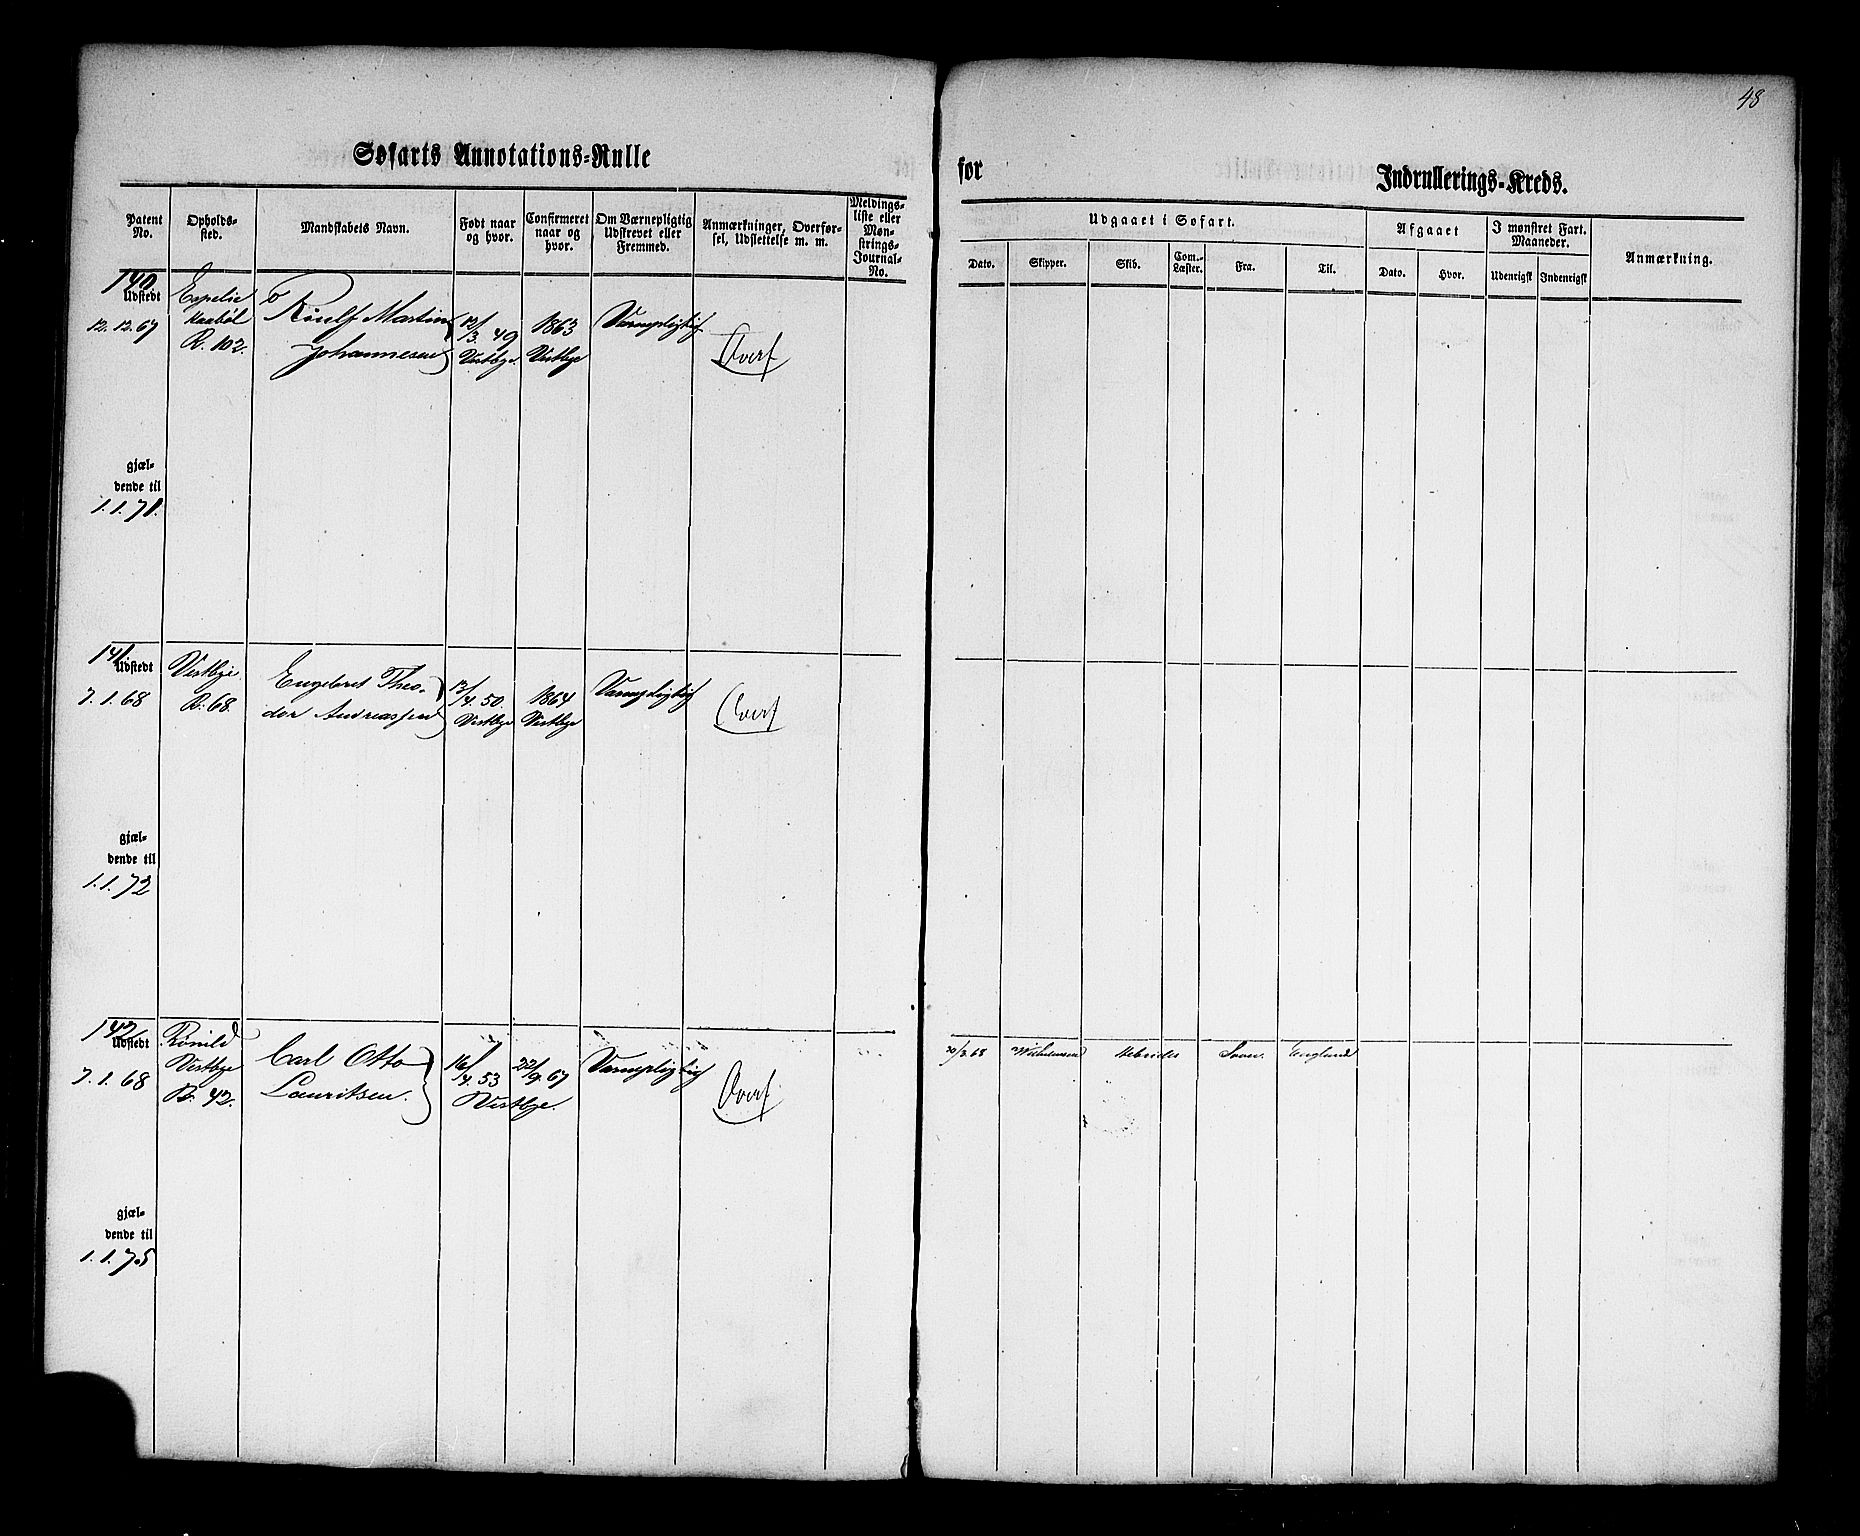 48
Søfarts Annotations=Rulle for Indrullerings=Kreds.
Patent No.
Opholds=sted.
Mandskabets Navn.
Født naar og hvor.
Confirmeret naar og hvor.
Om Værnepligtig Udskrevet eller Fremmed.
Anmærkninger, Overførsel, Udslettelse m. m.
Meldings=liste eller Møn=strings=Journal=No.
Udgaaet i Søfart.
Dato.
Skipper.
Skib.
Com.=Læster.
Fra.
Til.
Afgaaet
Dato.
Hvor.
I mønstret Fart. Maaneder.
Udenrigsk
Indenrigsk
Anmærkning.
140
Udstedt
12.12.67
Espelie
R. 102.
Martin
Johannesen
12/3 49
Vestbye
1863
Vestbye
Værnepligtig
Overf
gjæl=
dende til
1.1.71.
141
Udstedt
7.1.68
Vestbye
R. 68.
Engebret Theo-
dor Andreassen
13/4 50
Vestbye
1864
Vestbye
Værnepligtig
Overf
gjæl=
dende til
1.1.72
142
Udstedt
7.1.68
Rønild
Vestbye
R. 42.
Carl Otto
Lauritsen
16/4 53
22/9 67
Vestbye.
Værnepligtig
Overf
20/3 68
Wilhelmsen
Hebrides
Soon
England
gjæl=
dende til
1.1.75